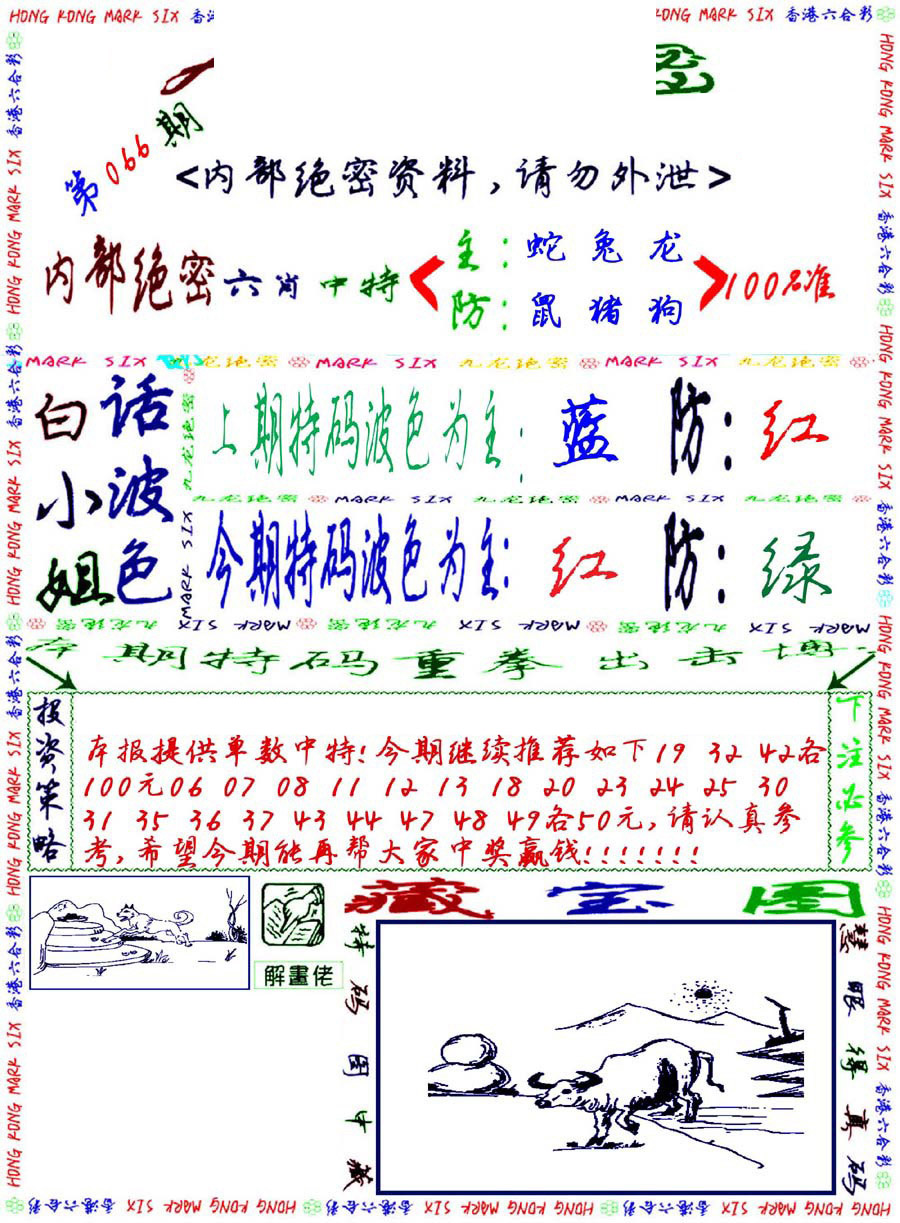 HONG KONG MARK SIX 香港六合彩
第066期
<内部绝密资料，请勿外泄>
内部绝密六肖中特
主：蛇兔龙
防：鼠猪狗
100%准
MARK SIX 九龙绝密 MARK SIX 九龙绝密 MARK SIX 九龙绝密
白话小波姐色
上期特码波色为主：蓝 防：红
九龙绝密 MARK SIX 九龙绝密 MARK SIX 九龙绝密
今期特码波色为主：红 防：绿
九龙绝密 MARK SIX 九龙绝密 MARK SIX 九龙绝密 MARK SIX
本期特码重拳出击
投资策略
本报提供单数中特！今期继续推荐如下19 32 42各
100元06 07 08 11 12 13 18 20 23 24 25 30
31 35 36 37 43 44 47 48 49各50元，请认真参
考，希望今期能再帮大家中奖赢钱！！！！！！！
下注必参
解畫佬
藏宝图
特码图中藏
慧眼得真码
HONG KONG MARK SIX 香港六合彩